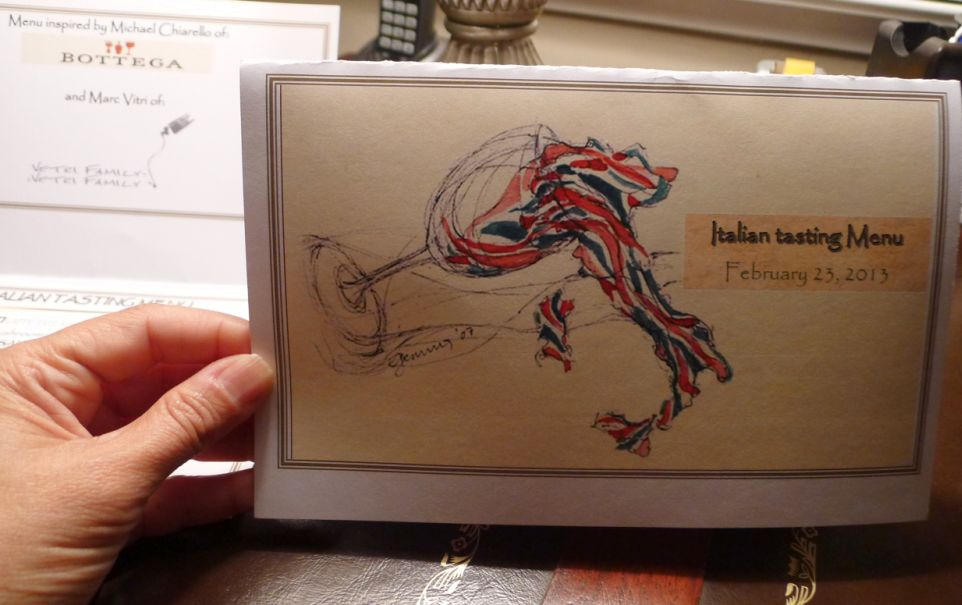 Menu inspired by Michael Chiarello of:
BOTTEGA
and Marc Vitri of:
VETRI FAMILY
VETRI FAMILY
ALIAN TASTING MENU
Italian tasting Menu
February 23, 2013
'07